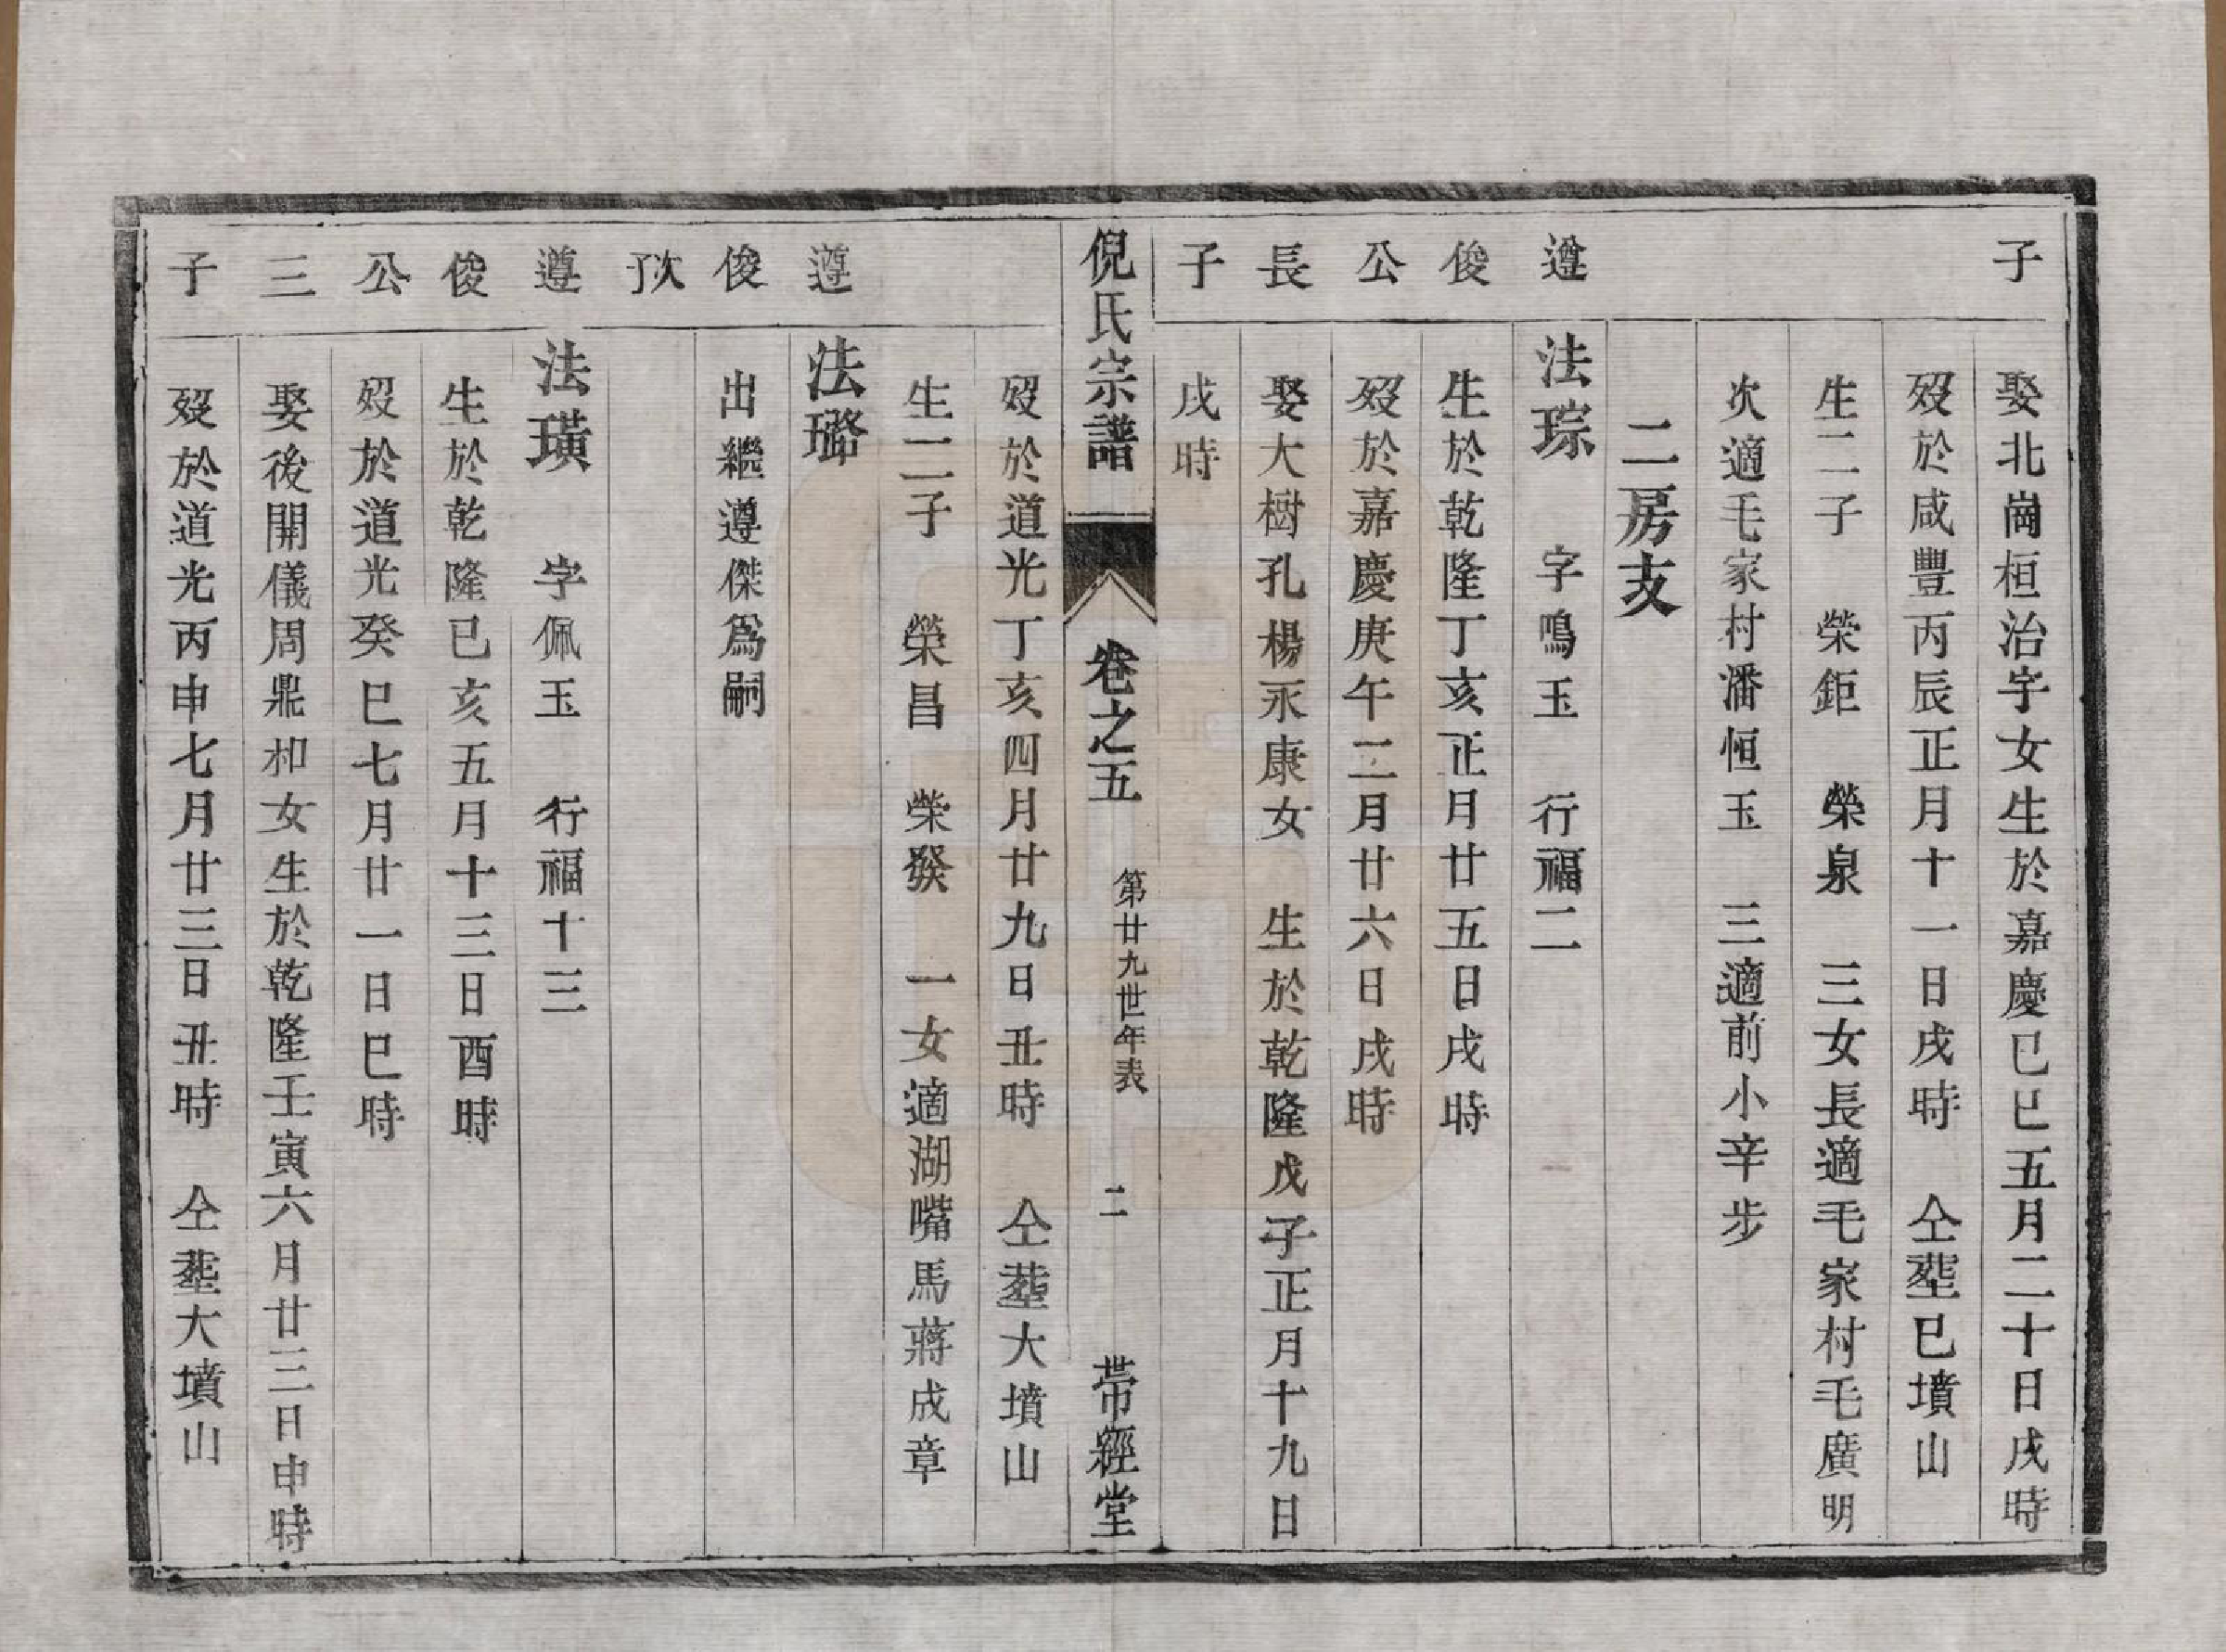 子
娶北崗桓治字女生於嘉慶己巳五月二十日戌時
歿於咸豐丙辰正月十一日戌時　仝塟巳墳山
生二子　榮鉅　榮泉　三女長適毛家村毛廣明
次適毛家村潘恒玉　三適前小辛步
二房支
遵俊公長子
法琮　字鳴玉　行福二
生於乾隆丁亥正月廿五日戌時
歿於嘉慶庚午二月廿六日戌時
娶大樹孔楊永康女　生於乾隆戊子正月十九日
戌時
倪氏宗譜　卷之五　第廿九世年表　二　帶經堂
歿於道光丁亥四月廿九日丑時　仝塟大墳山
生二子　榮昌　榮發　一女適湖嘴馬蔣成章
遵俊次子
法璐
出繼遵傑爲嗣
遵俊公三子
法璜　字佩玉　行福十三
生於乾隆己亥五月十三日酉時
歿於道光癸巳七月廿一日巳時
娶後開儀周鼎和女生於乾隆壬寅六月廿三日申時
歿於道光丙申七月廿三日丑時　仝塟大墳山